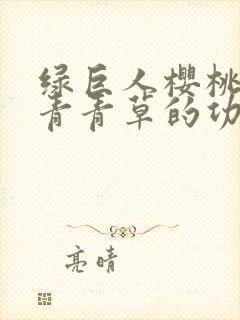 绿巨人樱桃
青青草的功
亮晴